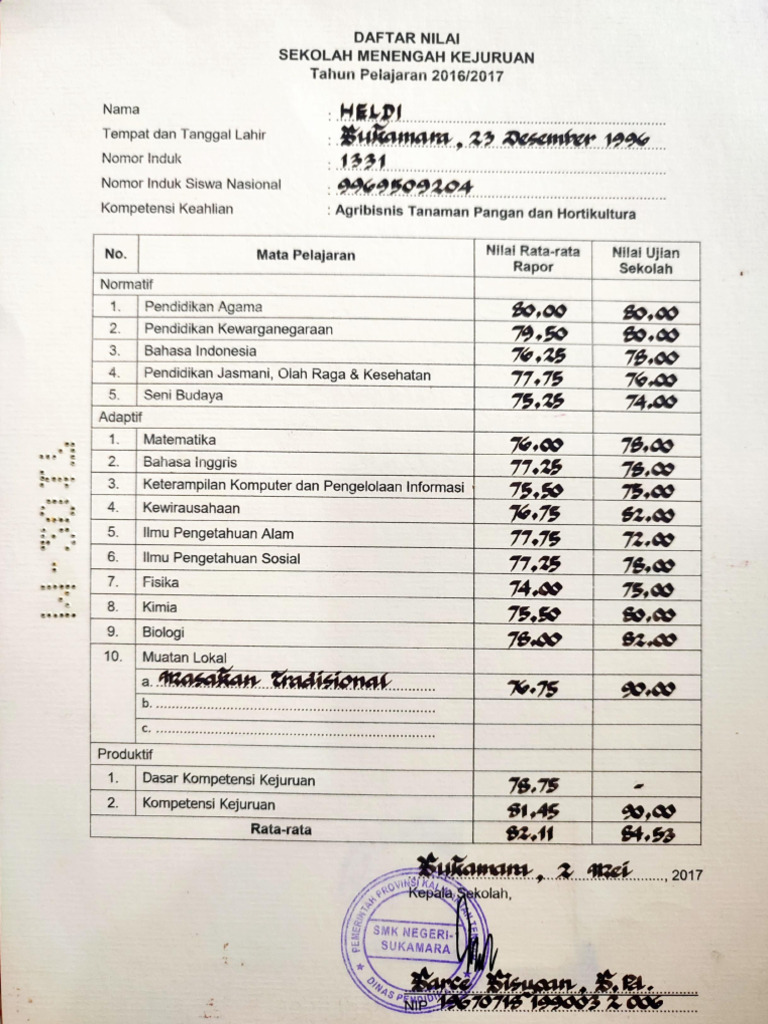 DAFTAR NILAI
SEKOLAH MENENGAH KEJURUAN
Tahun Pelajaran 2016/2017
Nama : HELDI
Tempat dan Tanggal Lahir : Sukamara, 23 Desember 1996
Nomor Induk : 1331
Nomor Induk Siswa Nasional : 9969509204
Kompetensi Keahlian : Agribisnis Tanaman Pangan dan Hortikultura
No. Mata Pelajaran Nilai Rata-rata Rapor Nilai Ujian Sekolah
Normatif
1. Pendidikan Agama 80,00 80,00
2. Pendidikan Kewarganegaraan 79,50 80,00
3. Bahasa Indonesia 76,25 78,00
4. Pendidikan Jasmani, Olah Raga & Kesehatan 77,75 76,00
5. Seni Budaya 75,25 74,00
Adaptif
1. Matematika 76,00 78,00
2. Bahasa Inggris 77,25 78,00
3. Keterampilan Komputer dan Pengelolaan Informasi 75,50 75,00
4. Kewirausahaan 76,75 82,00
5. Ilmu Pengetahuan Alam 77,75 72,00
6. Ilmu Pengetahuan Sosial 77,25 78,00
7. Fisika 74,00 75,00
8. Kimia 75,50 80,00
9. Biologi 78,00 82,00
10. Muatan Lokal
a. Masakan Tradisional 76,75 90,00
b.
c.
Produktif
1. Dasar Kompetensi Kejuruan 78,75 -
2. Kompetensi Kejuruan 81,45 90,00
Rata-rata 82,11 84,53
Sukamara, 2 Mei, 2017
Kepala Sekolah,
PEMERINTAH PROVINSI KALIMANTAN
SMK NEGERI-
SUKAMARA
DINAS PENDIDIKAN
NIP 19670718 199003 2 006